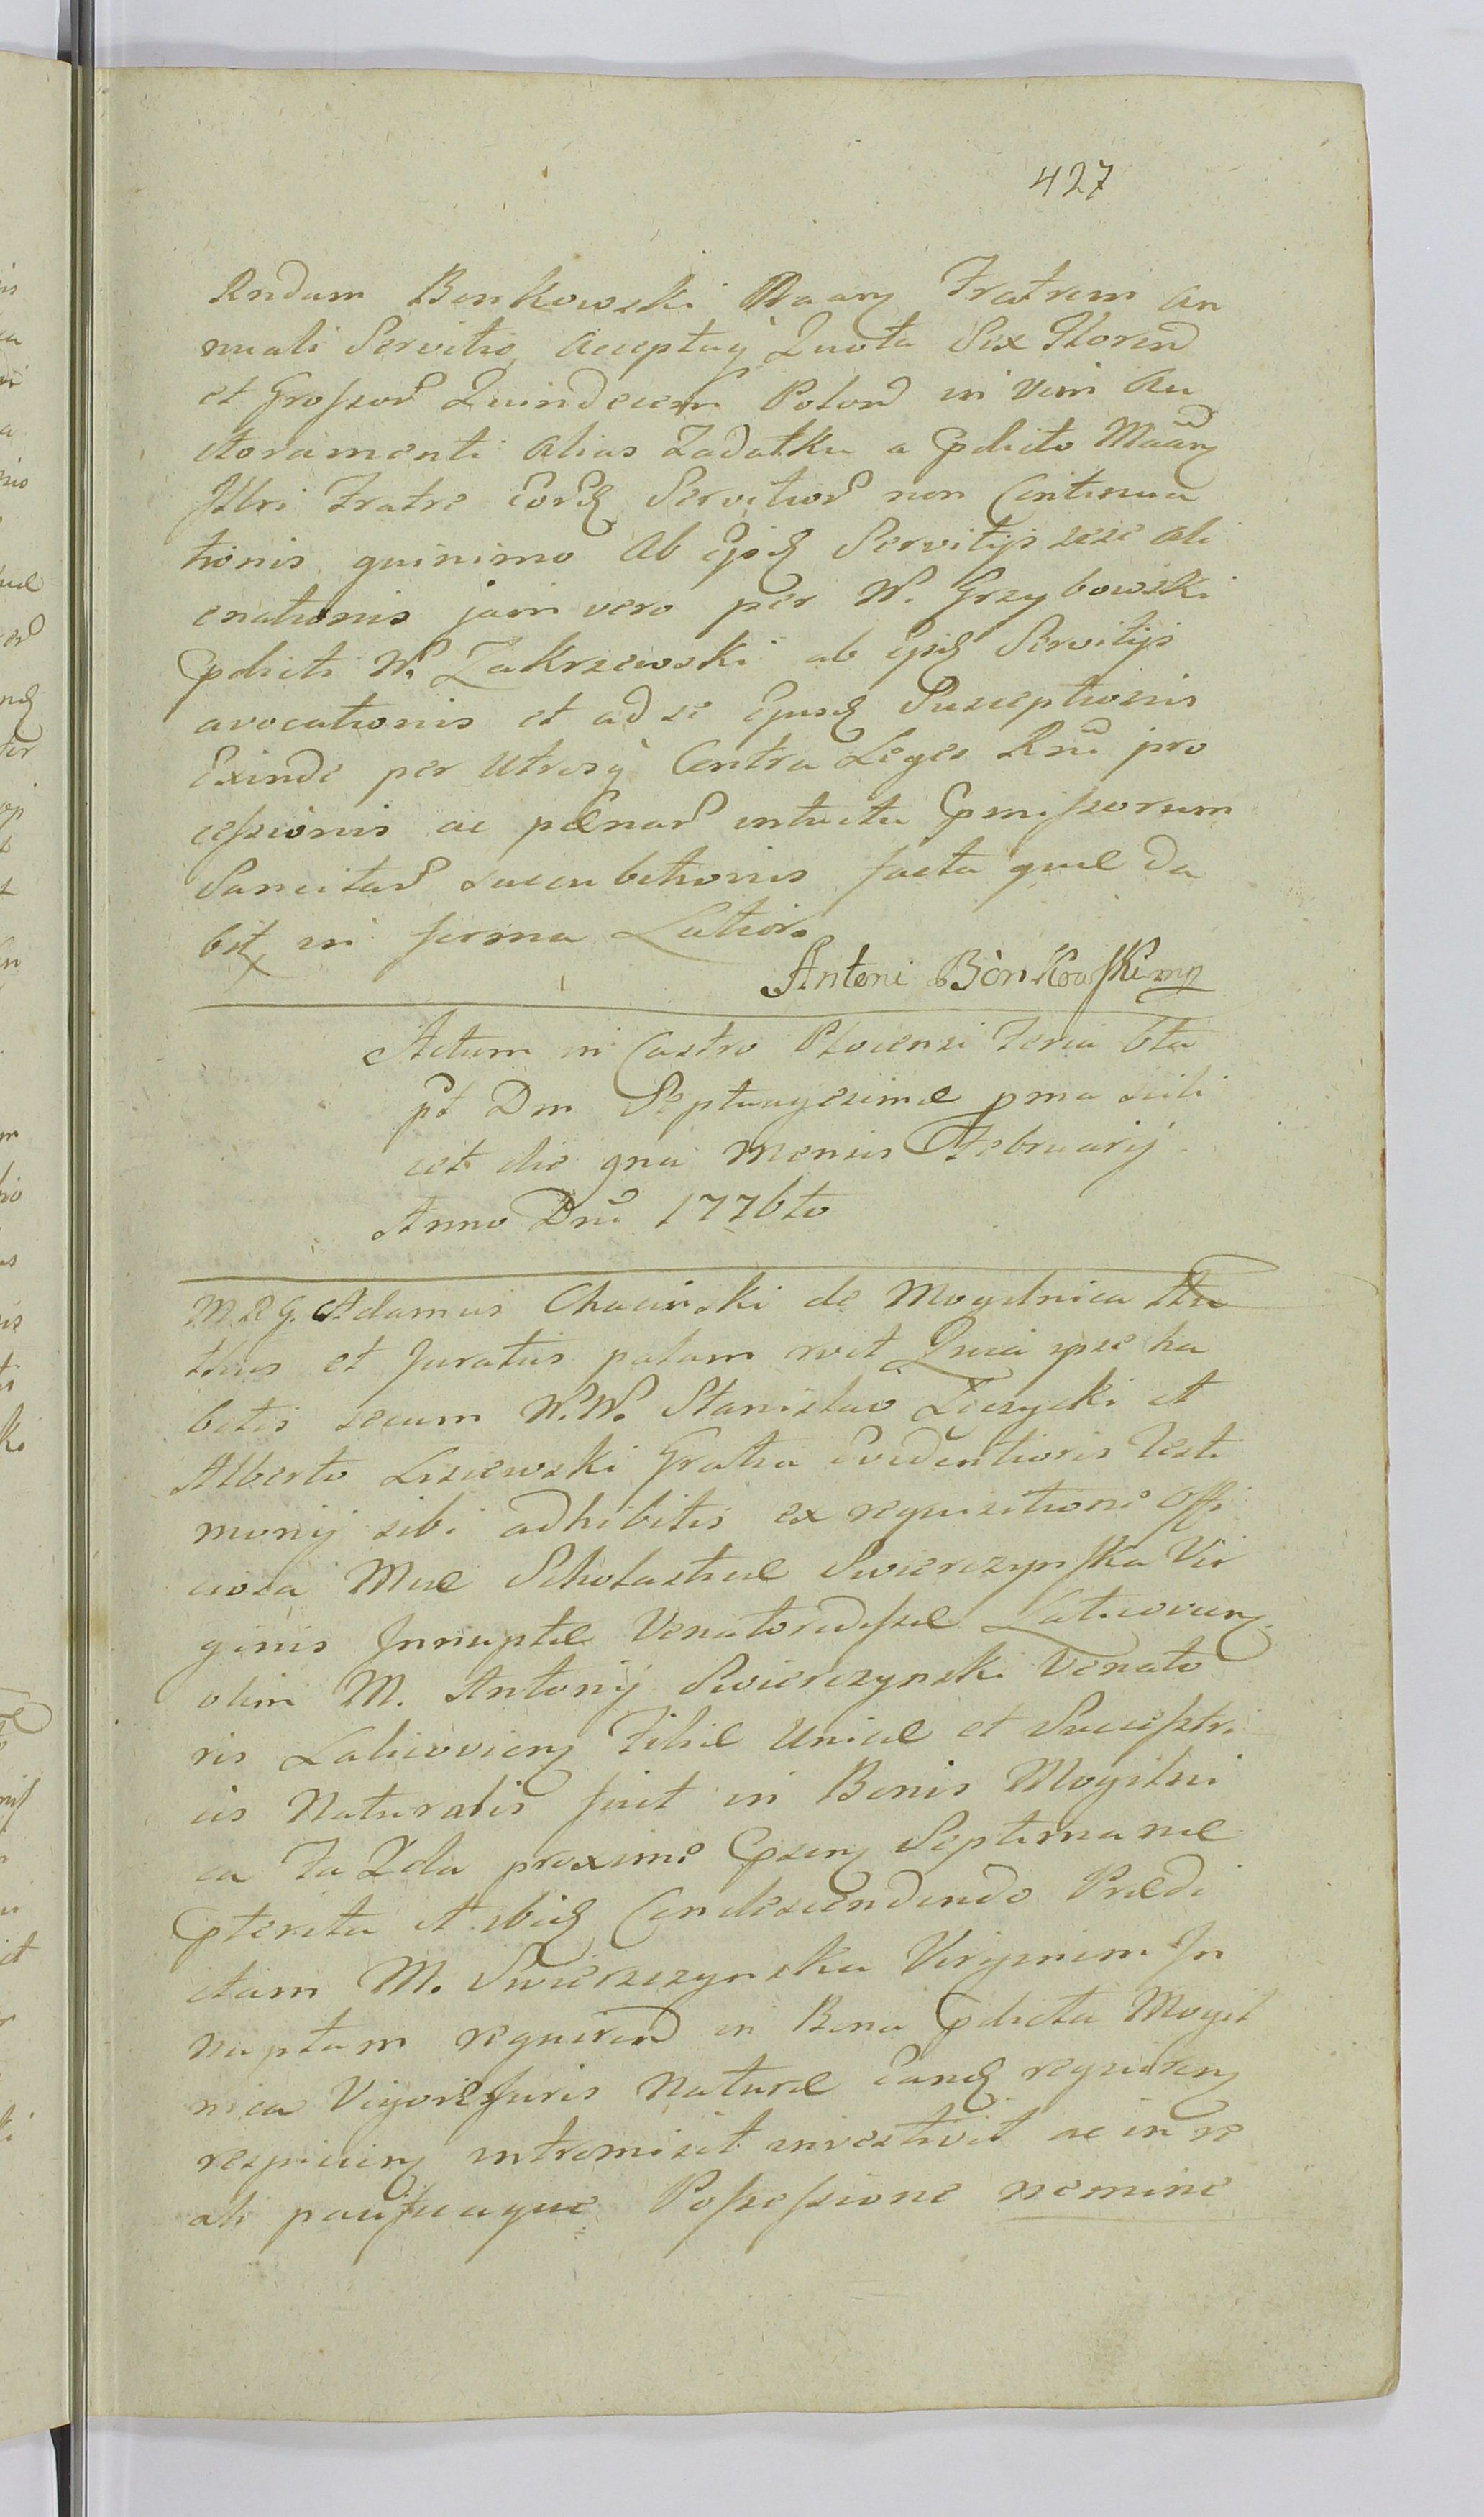 427
Rndum Bonkowski Fratrem an
nuali Servitio acceptaq Quota Sex Floren
et Grossor Quindecem Polon in vim Au
ctoramenti alias Zadatku a Pdicto
Fratre Servitior non Continua
tionis quinimo ab Servitijs sese ali
enationis jam vero per W. Grzybowski
Pdicti W. Zakrzewski ab Servitijs
avocationis et ad se Susceptionis
Exinde per utrosq Contra Leges Rni pro
cessionis ac pænar intuitu Pmissorum
Sancitar succubitionis facta quæ da
bit in forma Latior.
Antoni Bònkowski mp
Actum in Castro Plocensi Feria 6ta
pt Dm Septuagesimæ pma scili
cet die gna mensis February
Anno Dni 1776to
M. R. G. Adamus Chaciński de Mogilnica Au
thus et Juratus palam Quia ipse ha
bitis secum W.W. Stanislao Liczycki et
Alberto Lisiewski Gratia Evidentioris Testi
monij sibi adhibitis ex requisitione Offi
ciosa Mæ Scholasticæ Swierczynska Vir
ginis Innuptæ
olim M. Antonij Swierczynski Venato
ris Filiæ Unicæ et Successtri
cis Naturalis fuit in Bonis Mogilni
ca Fa proxime Septimanæ
Pterita et ibid Condescendendo Prædi
ctam M. Swierczynska Virginem In
nuptam requiren in Bona Pdicta Mogil
nica Vigore Juris Naturæ Eand requiren
respicien intromisit investivit ac in re
ali pacificaque Possessione nemine